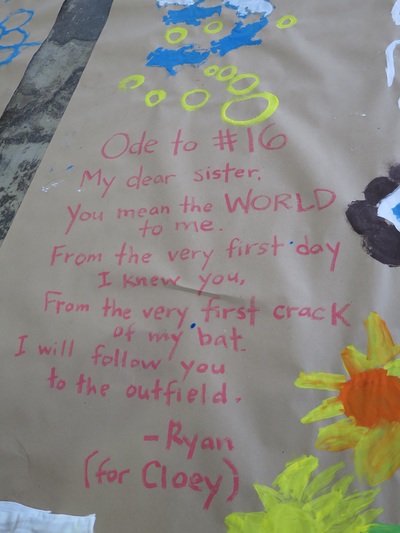 Ode to #16
My dear sister.
You mean the WORLD
to me.
From the very first day
I knew you,
From the very first crack
of my bat.
I will follow you
to the outfield.
- Ryan
(for Cloey)